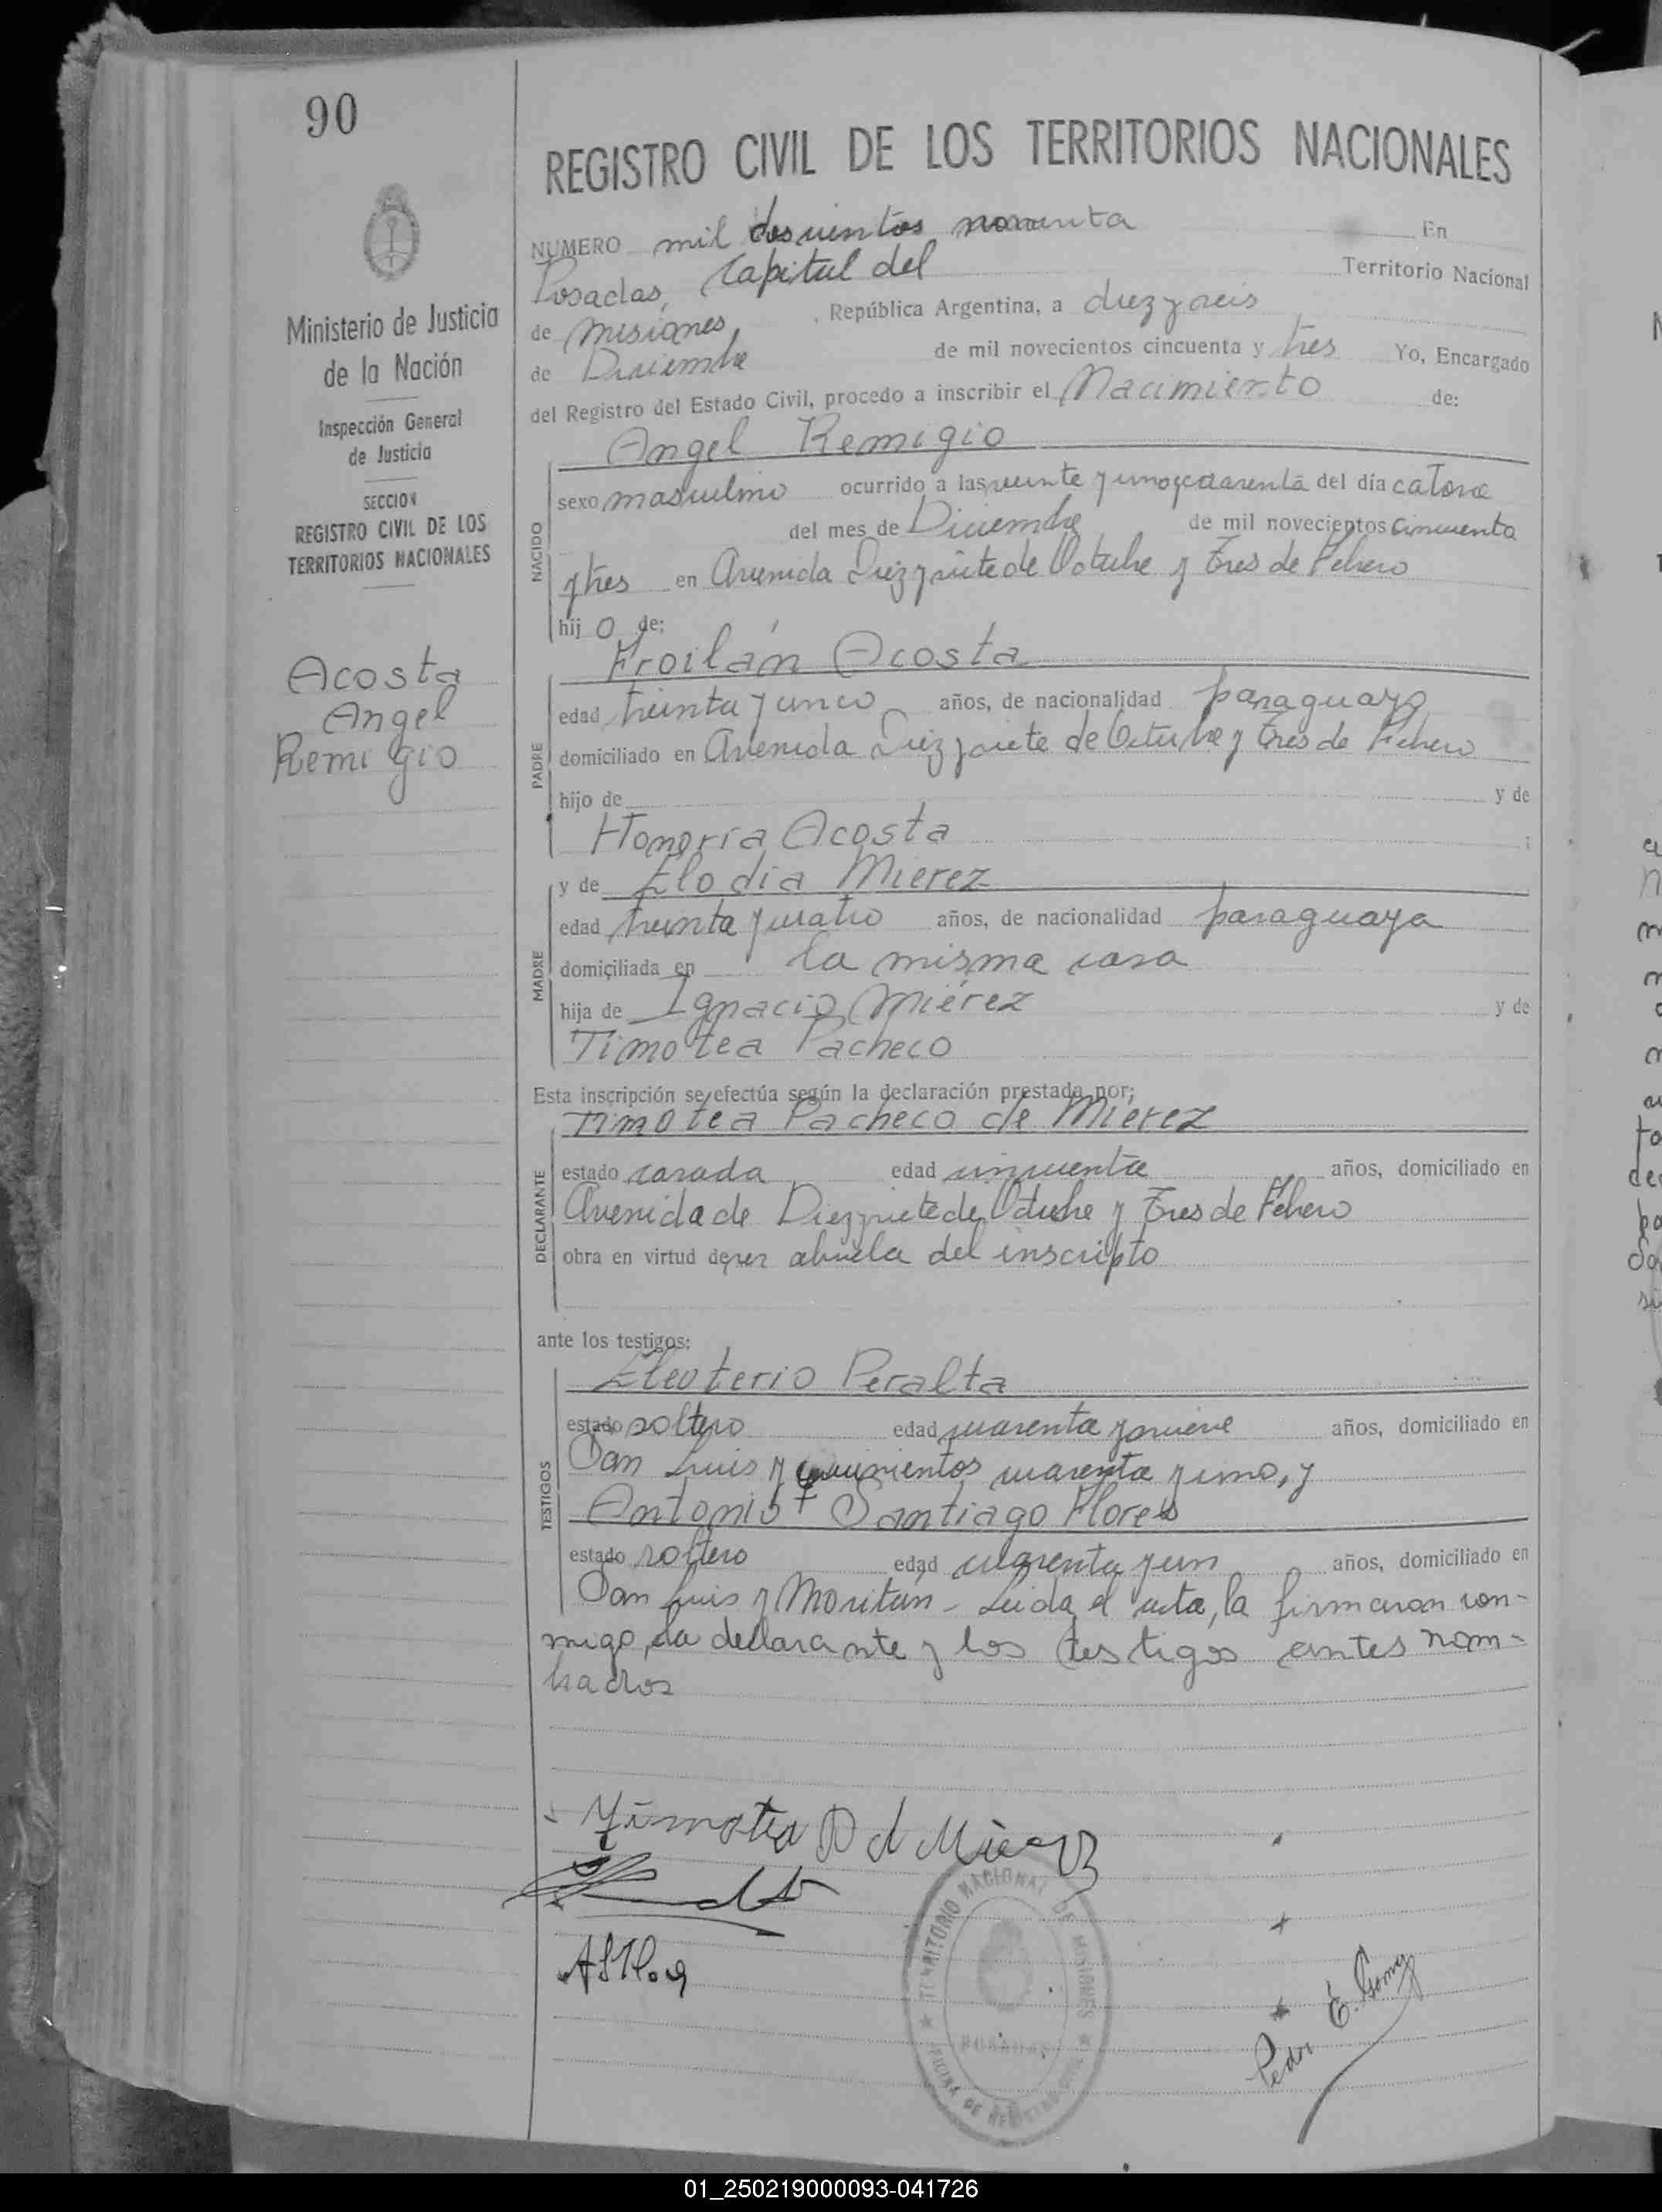 90
REGISTRO CIVIL DE LOS TERRITORIOS NACIONALES
NUMERO mil doscientos noventa En
Posadas, Capital del Territorio Nacional
de Misiones, República Argentina, a diez y seis
de Diciembre de mil novecientos cincuenta y tres Yo, Encargado
del Registro del Estado Civil, procedo a inscribir el Nacimiento de:
Angel Remigio
NACIDO
sexo masculino ocurrido a las veinte y uno y cuarenta del día catorce
del mes de Diciembre de mil novecientos cincuenta
y tres en Avenida Diez y siete de Octubre y Tres de Febrero
hijo de:
Froilán Acosta
PADRE
edad treinta y cinco años, de nacionalidad paraguayo
domiciliado en Avenida Diez y siete de Octubre y Tres de Febrero
hijo de y de
Honoria Acosta ;
y de Elodia Mierez
MADRE
edad treinta y cuatro años, de nacionalidad paraguaya
domiciliada en la misma casa
hija de Ignacio Miérez y de
Timotea Pacheco
Esta inscripción se efectúa según la declaración prestada por:
Timotea Pacheco de Miérez
DECLARANTE
estado casada edad cincuenta años, domiciliado en
Avenida de Diez y siete de Octubre y Tres de Febrero
obra en virtud de ser abuela del inscripto
ante los testigos:
Eleuterio Peralta
TESTIGOS
estado soltero edad cuarenta y nueve años, domiciliado en
San Luis y quinientos cuarenta y uno, y
Antonio Santiago Flores
estado soltero edad cuarenta y un años, domiciliado en
San Luis y Moritán - Leida el acta, la firmaron con-
migo, la declarante y los testigos antes nom-
brados
Timotea P d Mierez
Pedro E. Gomez
TERRITORIO NACIONAL DE MISIONES
POSADAS
OFICINA DE REGISTRO CIVIL
Ministerio de Justicia
de la Nación
Inspección General
de Justicia
SECCION
REGISTRO CIVIL DE LOS
TERRITORIOS NACIONALES
Acosta
Angel
Remigio
01_250219000093-041726